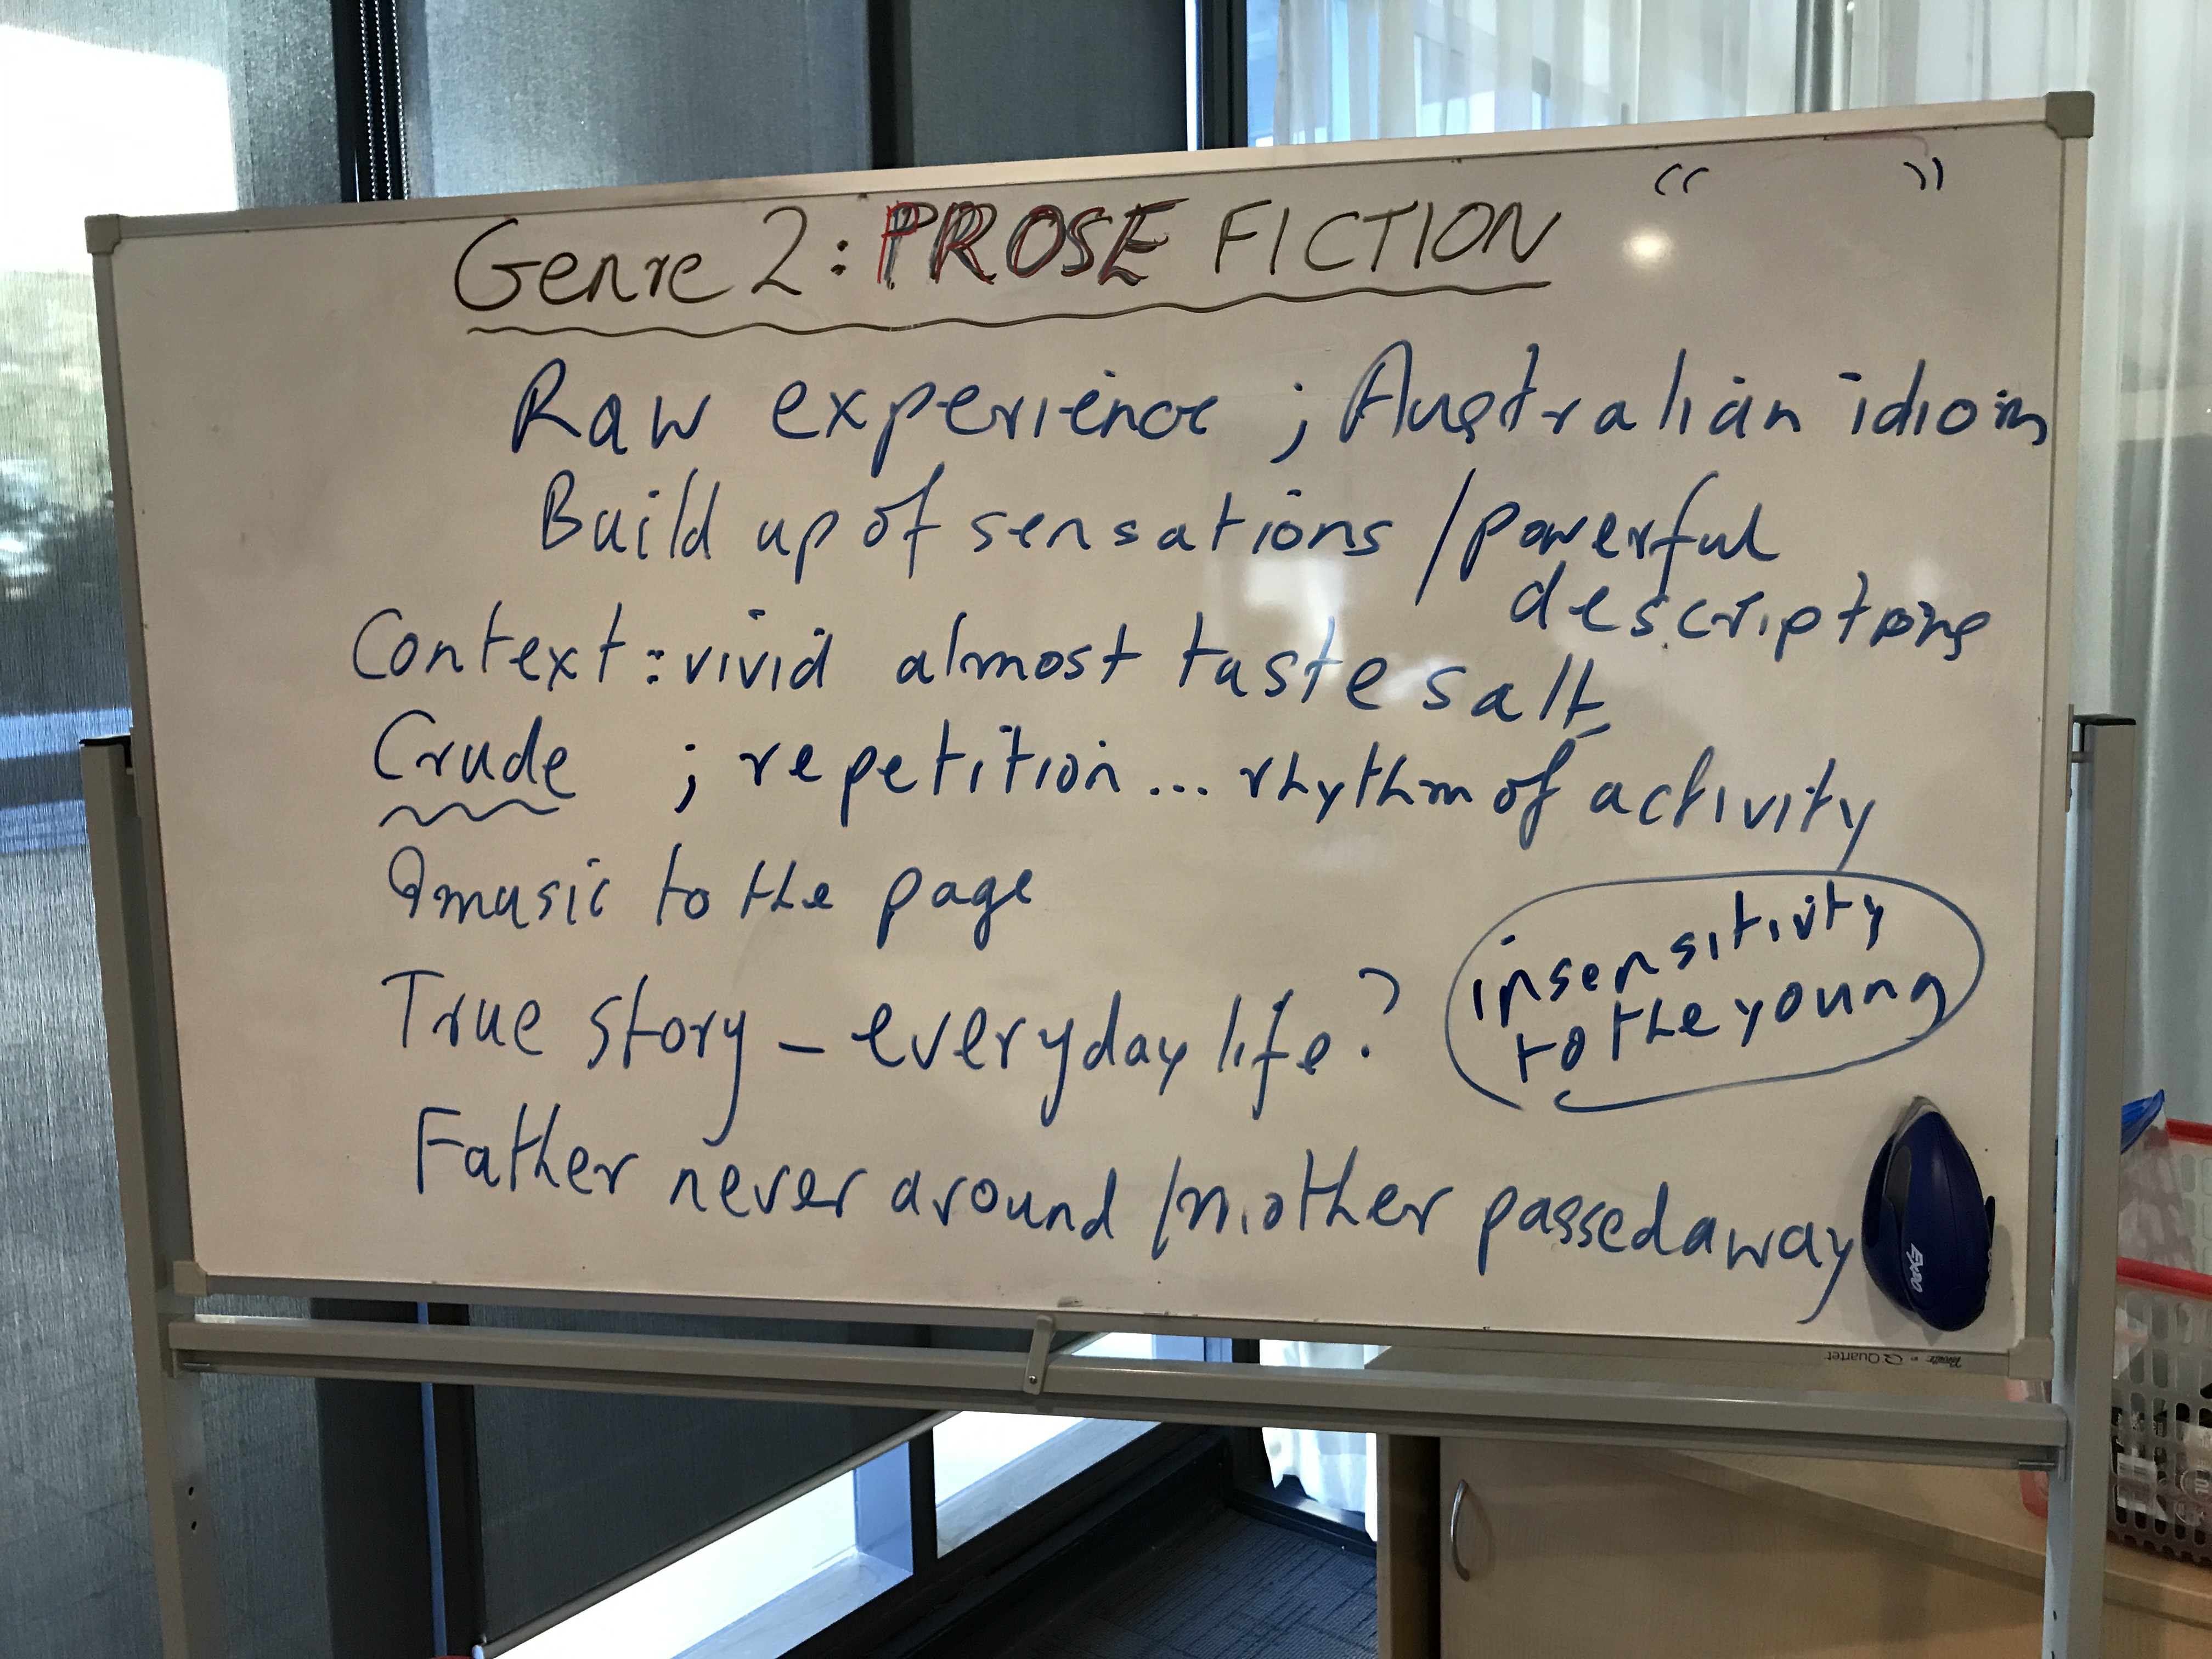 “ ”
Genre 2: PROSE FICTION
Raw experience ; Australian idiom
Build up of sensations / powerful
descriptions
Context: vivid almost taste salt
Crude ; repetition... rhythm of activity
music to the page
True story – everyday life?
insensitivity
to the young
Father never around / mother passed away
Expo
Quartet